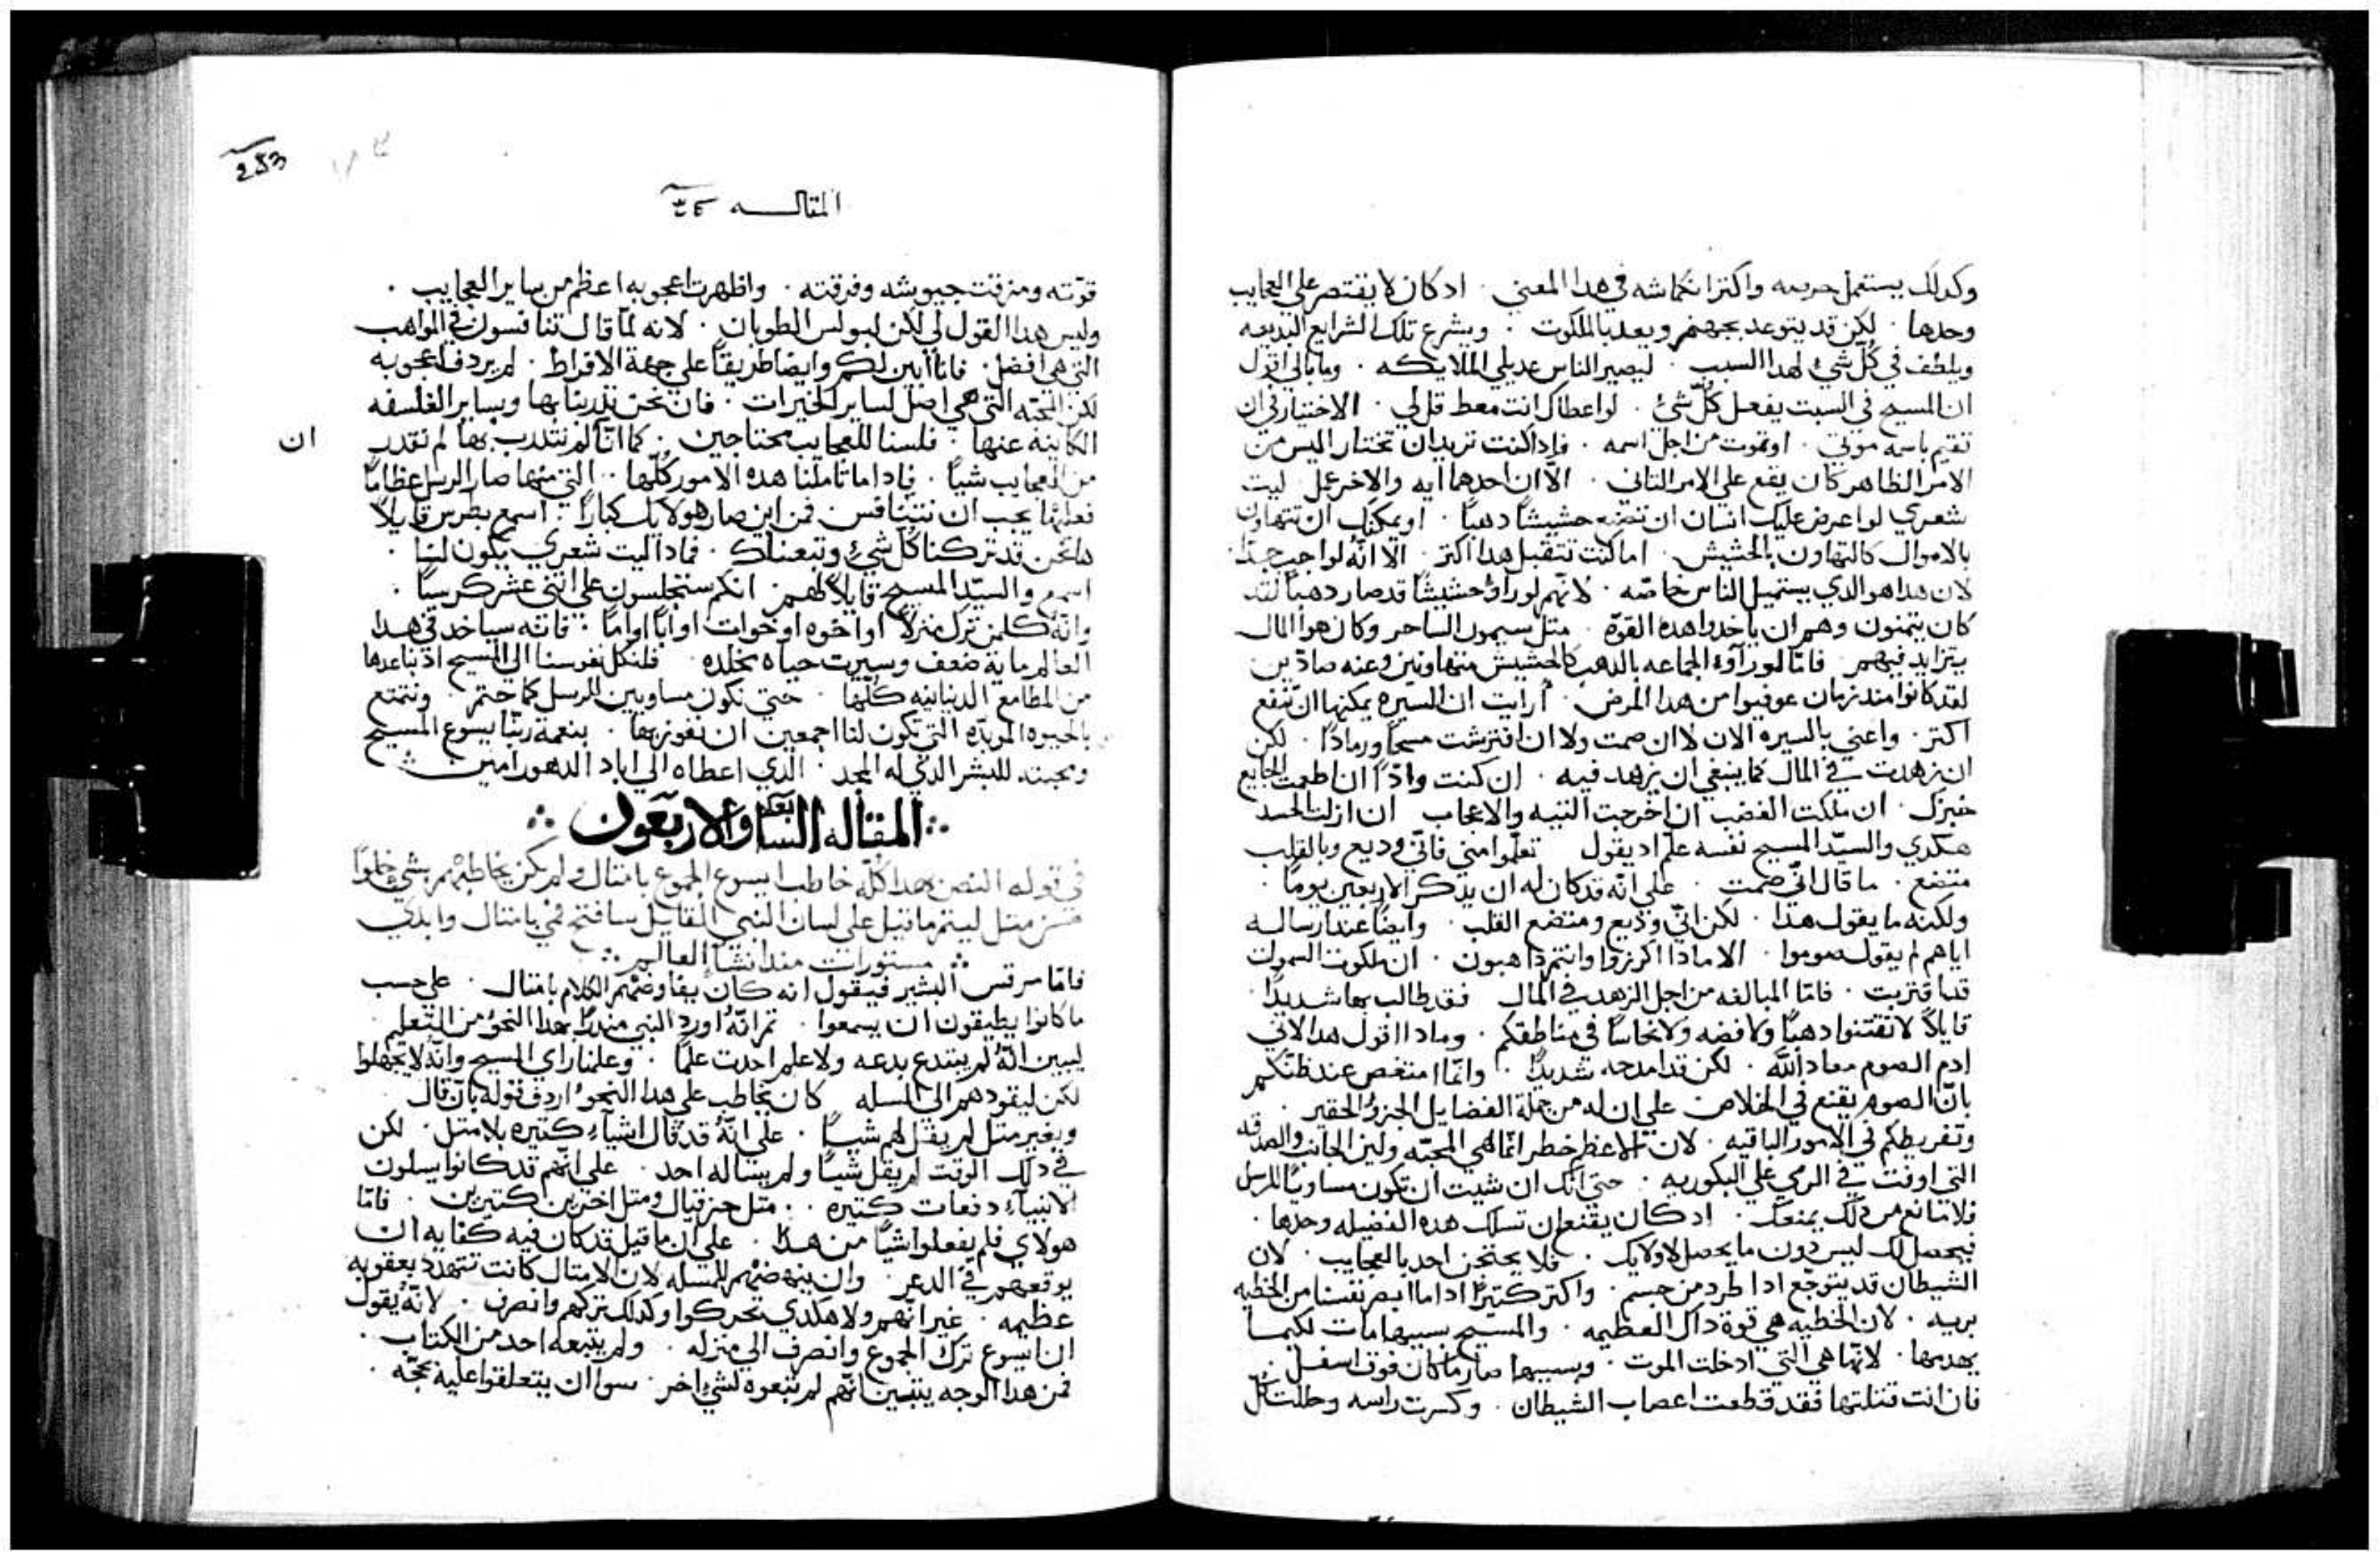 وكدلك يستعمل حريصه واكتر انكماشه في هدا المعني . ادكان لا يقتصر علي العجايب
وحدها . لكن قد يتوعد بجهنم ويعد بالملكوت . ويشرع تلك الشرايع البديعه
ويلطف في كل شيء لهدا السبب . ليصير الناس عديلي الملايكه . وما بالي اقول
ان المسيح في السبت يفعل كل شئ . لو اعطاك انت معط قل لي . الاختيار في ان
تقيم باسمه موتي . او تموت من اجل اسمه . فاداكنت تريد ان تختار اليس من
الامر الظاهر كان يقع علي الامر التاني . الا ان احدهما ايه والاخر عمل ليت
شعري لو اعرض عليك انسان ان تضع حشيشا دهبا . او يمكنك ان تتهاون
بالاموال كالتهاون بالحشيش . اما كنت تتقبل هدا اكتر . الا انه لواجب جدا
لان هدا هو الدي يستميل الناس خاصه . لانهم لو راوا حشيشا قد صار دهبا لقد
كان يتمنون وهم ان ياخدوا هده القوة . متل سيمون الساحر وكان هوا المال
يتزايد فيهم . فاما لو راوه الجماعه بالدهب كالحشيش متهاونين وعنه صادين
لقد كانوا مند زمان عوفيوا من هدا المرض . ارايت ان السيره يمكنها ان تنفع
اكتر . واعني بالسيره الان لا ان صمت ولا ان افترشت مسحا ورمادا . لكن
ان زهدت في المال كما ينبغي ان يزهد فيه . ان كنت وادا ان اطعمت الجايع
خبزك . ان ملكت الغضب ان اخرجت التيه والاعجاب ان ازلت الحسد
هكدي والسيد المسيح نفسه علم اد يقول تعلموا مني فاني وديع وبالقلب
متضع . ما قال اني صمت . علي انه قد كان له ان يدكر الاربعين يوما .
ولكنه ما يقول هدا . لكن اني وديع ومتضع القلب . وايضا عند ارساله
اياهم لم يقول صوموا . الا مادا اكرزوا وانتم داهبون . ان ملكوت السموات
قد اقتربت . فاما المبالغه من اجل الزهد في المال فقد طالب بها شديدا .
قايلا لا تقتنوا دهبا ولا فضه ولا نحاسا في مناطقكم . ومادا اقول هدا لاني
ادم الصوم معاد الله . لكن قد امدحه شديدا . وانما امتغص عند ظنكم
بان الصوم يقنع في الخلاص علي ان له من جملة الفضايل الجزو الحقير .
وتفريطكم في الامور الباقيه . لان الاعظم خطر انما هي المحبه ولين الجانب والصدقه
التي اوفت في الرمي علي البكوريه . حتي انك ان شيت ان تكون مساويا للرسل
فلا مانع من دلك يمنعك . اد كان يقنع ان تسلك هده الفضيله وحدها .
فيحصل لك ليس دون ما يحصل لاولايك . فلا يحتجن احد بالعجايب . لان
الشيطان قد يتوجع ادا طرد من جسم . واكتر كتيرا اداما ابصر نفسنا من الخطيه
بريه . لان الخطيه هي قوة داك العظيمه . والمسيح سببها مات لكيما
يهدمها . لانها هي التي ادخلت الموت . وبسببها صار ما كان فوق اسفل
فان انت قتلتها فقد قطعت اعصاب الشيطان . وكسرت راسه وحللت كل
253
المقاله
قوته ومزقت جيوشه وفرقته . واظهرت اعجوبه اعظم من ساير العجايب .
وليس هدا القول لي لكن لبولس الطوبان . لانه لما قال تنافسون في المواهب
التي هي افضل . فانا ابين لكم وايضا طريقا علي جهة الافراط . لم يردف اعجوبه
لكن المحبه التي هي اصل لساير الخيرات . فان نحن تدربنا بها وبساير الفلسفه
الكاينه عنها . فلسنا للعجايب محتاجين . كما اننا لم نتدرب بها لم نقدر ان
من العجايب شيا . فاداما تاملنا هده الامور كلها . التي منها صار الرسل عظاما
فعلها يجب ان نتنافس . فمن اين صار هولايك كبارا . اسمع بطرس قايلا
هانحن قد تركنا كل شيء وتبعناك . فمادا ليت شعري يكون لنا .
اسمع والسيد المسيح قايلا لهم انكم ستجلسون علي اتني عشر كرسيا .
وانه كلمن ترك منزلا او اخوه او خوات او ابا او اما . فانه سياخد في هدا
العالم ماية ضعف وسيرت حياه مخلده . فلنكل نفوسنا الي المسيح اد نباعدها
من المطامع الدنيانيه كلها . حتي نكون مساويين للرسل كما حتم . ونتمتع
بالحيوه الموبده التي تكون لنا اجمعين ان نفوز بها . بنعمة ربنا يسوع المسيح
ومحبته للبشر الدي له المجد . الدي اعطاه الي اباد الدهور امين
المقاله السابعه والاربعون
في قوله النص هدا كله خاطب ايسوع الجموع بامتال ولم يكن يخاطبهم بشي خلوا
من متل ليتم ما قيل علي لسان النبي القايل سافتح فمي بامتال وابدي
مستورات مند انشا العالم
فاما مرقس البشير فيقول انه كان يفاوضهم الكلام بامتال . علي حسب
ما كانوا يطيقون ان يسمعوا . تم انه اورد النبي مندرا بهدا النحو من التعليم .
ليبين انه لم يبتدع بدعه ولا علم احدت علما . وعلمنا راي المسيح وانه لا يجهلوا
لكن ليقودهم الي المسله كان يخاطب علي هدا النحو اردف قوله بان قال
وبغير متل لم يقل لهم شيا . علي انه قد قال اشياء كتيره بلا متل . لكن
في دلك الوقت لم يقل شيا ولم يساله احد . علي انهم قد كانوا يسلون
الانبياء دفعات كتيره . متل حزقيال ومتل اخرين كتيرين . فاما
هولاي فلم يفعلوا شيا من هدا . علي ان ما قيل قد كان فيه كفايه ان
يوقعهم في الدعر . وان ينهضهم للمسله لان الامتال كانت تتهدد بعقوبه
عظيمه . غير انهم ولا هكدي تحركوا وكدلك تركهم وانصرف . لانه يقول
ان ايسوع ترك الجموع وانصرف الي منزله . ولم يتبعه احد من الكتاب .
فمن هدا الوجه يتبين انهم لم يتبعوه لشي اخر . سوا ان يتعلقوا عليه بحجه .